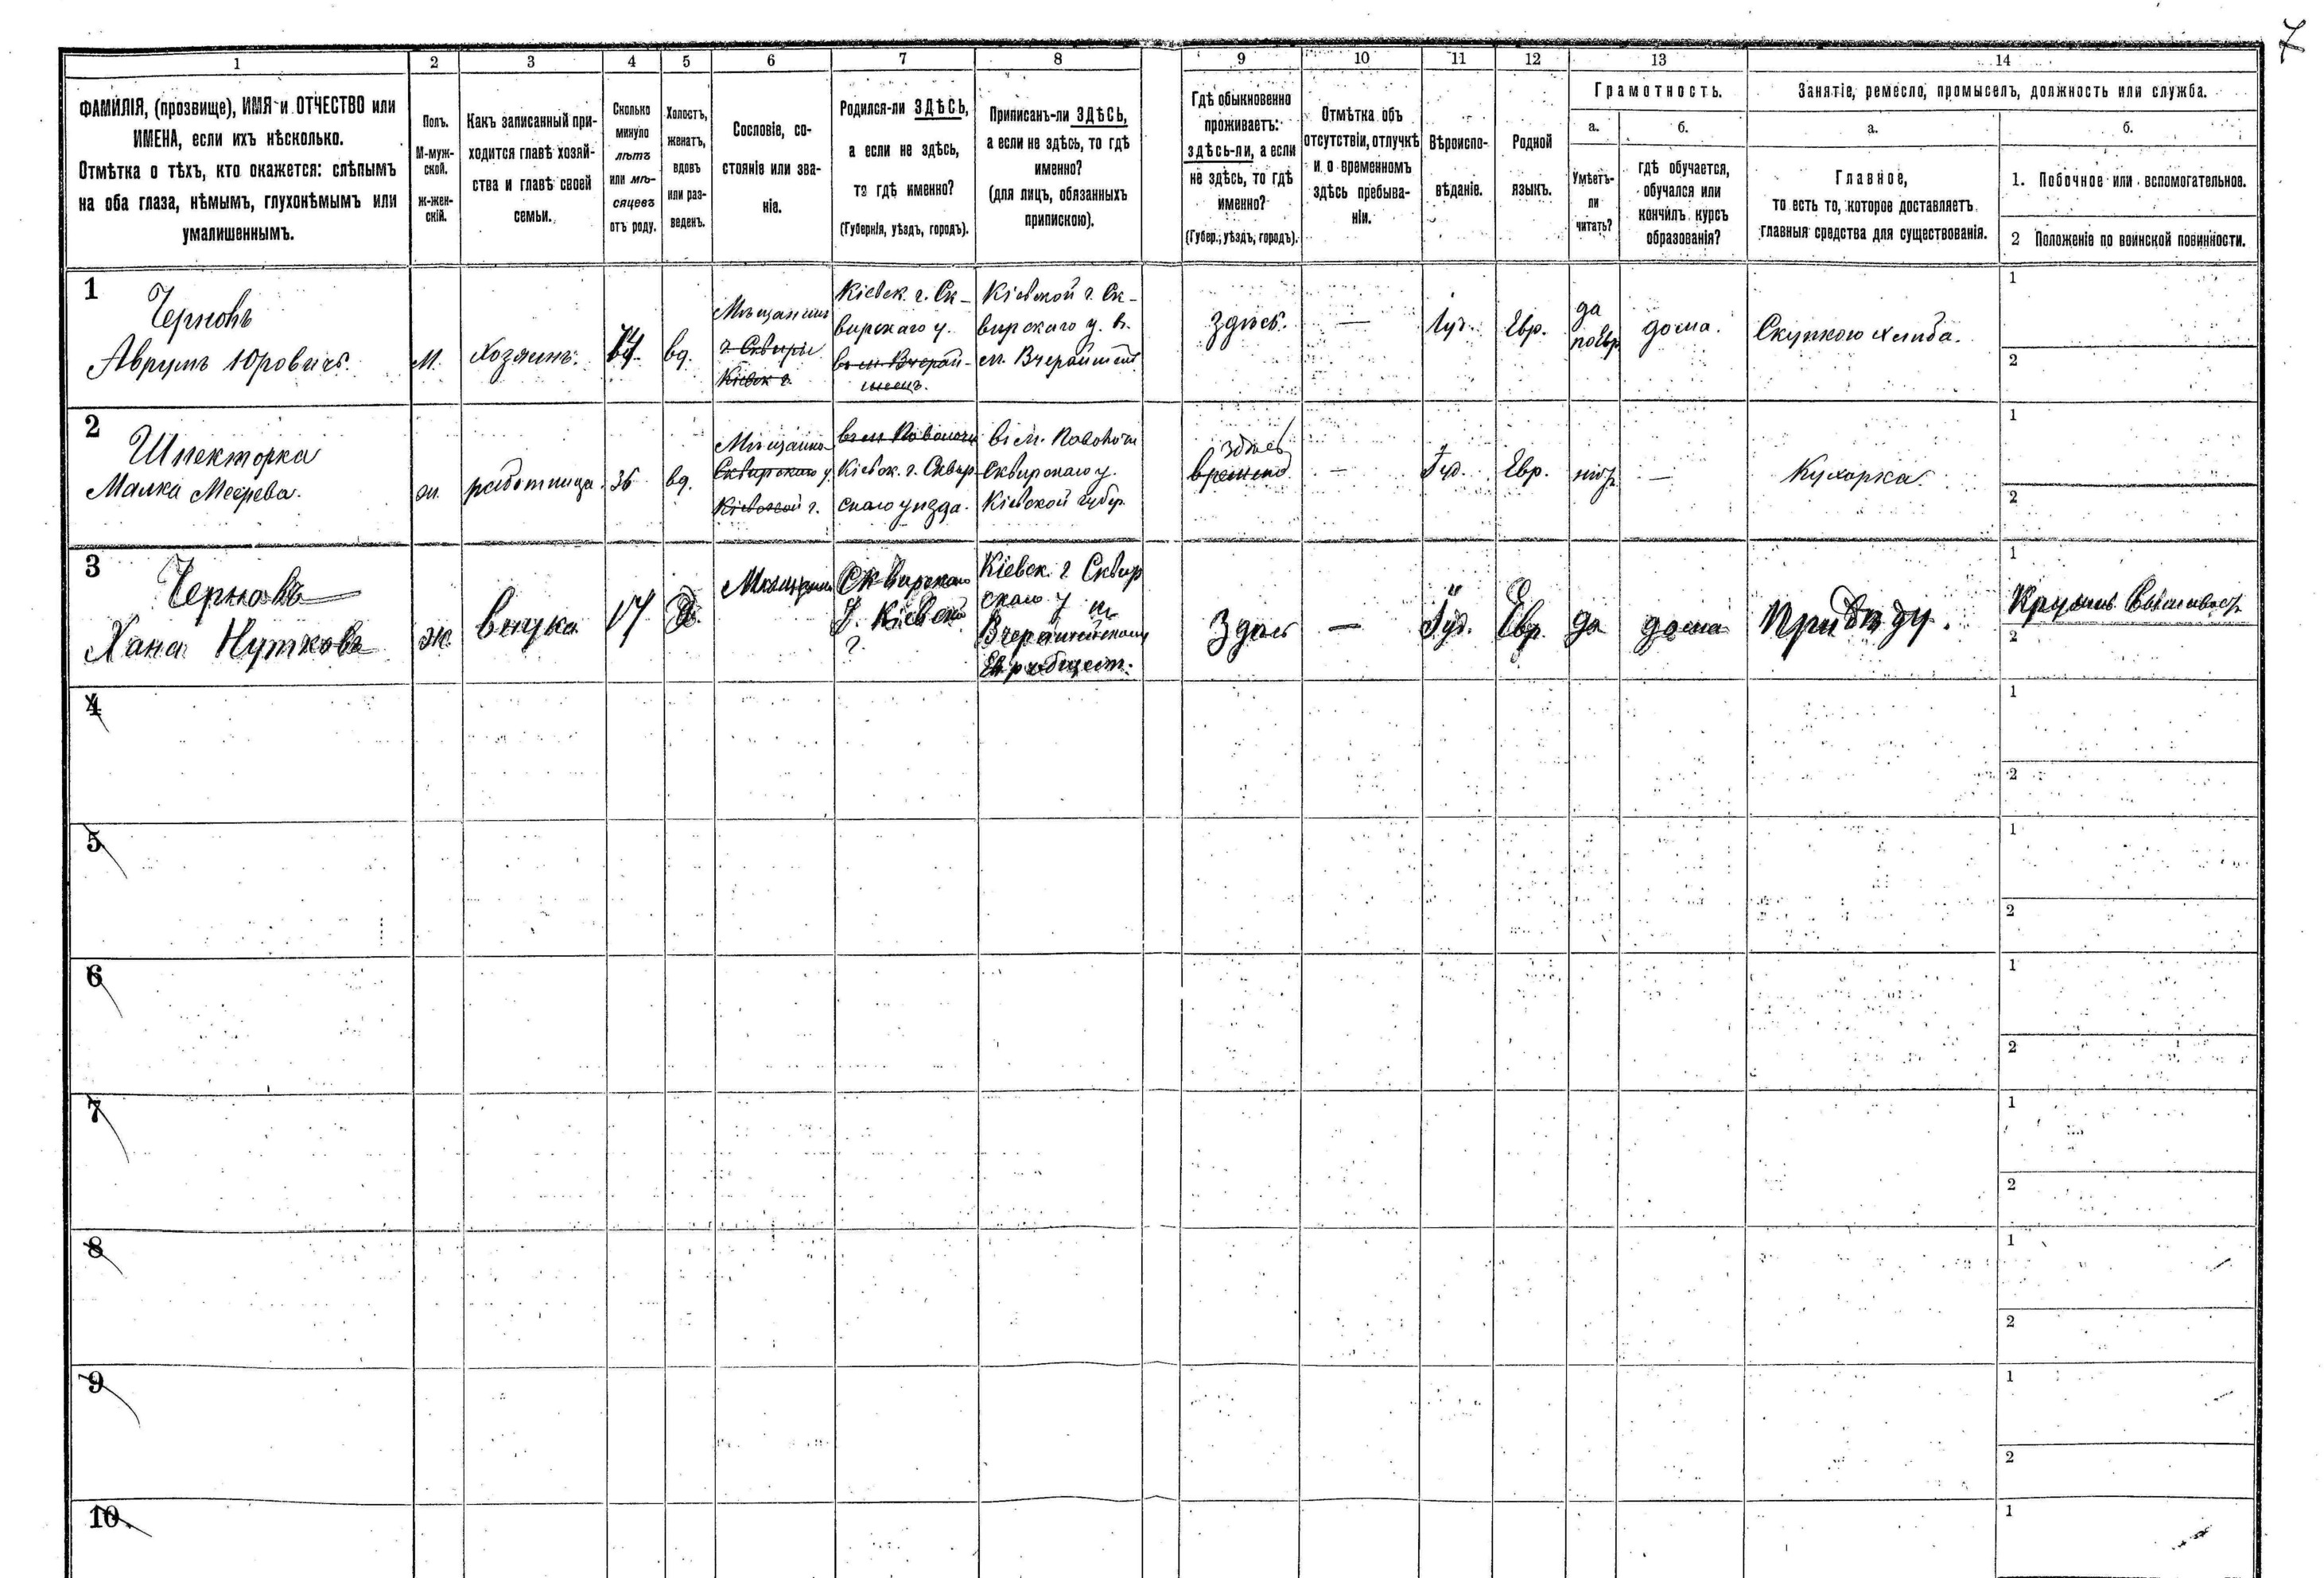 7
1 2 3 4 5 6 7 8 9 10 11 12 13 14
ФАМИЛІЯ, (прозвище), ИМЯ и ОТЧЕСТВО или
ИМЕНА, если ихъ нѣсколько.
Отмѣтка о тѣхъ, кто окажется: слѣпымъ
на оба глаза, нѣмымъ, глухонѣмымъ или
умалишеннымъ.
Полъ.
М-муж-
ской.
ж-жен-
скій.
Какъ записанный при-
ходится главѣ хозяй-
ства и главѣ своей
семьи.
Сколько
минуло
лѣтъ
или мѣ-
сяцевъ
отъ роду.
Холостъ,
женатъ,
вдовъ
или раз-
веденъ.
Сословіе, со-
стояніе или зва-
ніе.
Родился-ли ЗДѢСЬ,
а если не здѣсь,
то гдѣ именно?
(Губернія, уѣздъ, городъ).
Приписанъ-ли ЗДѢСЬ,
а если не здѣсь, то гдѣ
именно?
(для лицъ, обязанныхъ
припискою).
Гдѣ обыкновенно
проживаетъ:
здѣсь-ли, а если
не здѣсь, то гдѣ
именно?
(Губер., уѣздъ, городъ).
Отмѣтка объ
отсутствіи, отлучкѣ
и о временномъ
здѣсь пребыва-
ніи.
Вѣроиспо-
вѣданіе.
Родной
языкъ.
Грамотность.
а.
Умѣетъ-
ли
читать?
б.
гдѣ обучается,
обучался или
кончилъ курсъ
образованія?
Занятіе, ремесло, промыселъ, должность или служба.
а.
Главное,
то есть то, которое доставляетъ
главныя средства для существованія.
б.
1. Побочное или вспомогательное.
2 Положеніе по воинской повинности.
1
Черновъ
Аврумъ Юровичъ.
М.
Хозяинъ.
вд.
Мѣщанинъ
г. Сквиры
Кіевск г.
Кіевск. г. Ск-
вирскаго у.
въ м. Вчерай-
шемъ.
Кіевской г. Ск-
вирскаго у. въ
м. Вчерайшемъ
здѣсь.
—
Іуд.
Евр.
да
дома.
Скупкою хлѣба.
1
2
2
Шпекторка
Малка Меерева.
ж.
работница.
36
вд.
Мѣщанка
Сквирскаго у.
Кіевской г.
въ м. Паволочи
Кіевск. г. Сквир
скаго уѣзда.
въ м. Паволочи
Сквирскаго у.
Кіевской губер.
здѣсь
временно
—
Іуд.
Евр.
—
Кухарка
1
2
3
Черновъ
Хана
ж.
внука
17
Сквирскаго
У. Кіевской
г.
Кіевск. г Сквир
скаго у
Вчерайшенскому
Евр обществ.
Здѣсь
—
Іуд.
Евр.
да
дома
При дѣду.
1
2
4
1
2
5
1
2
6
1
2
7
1
2
8
1
2
9
1
2
10.
1